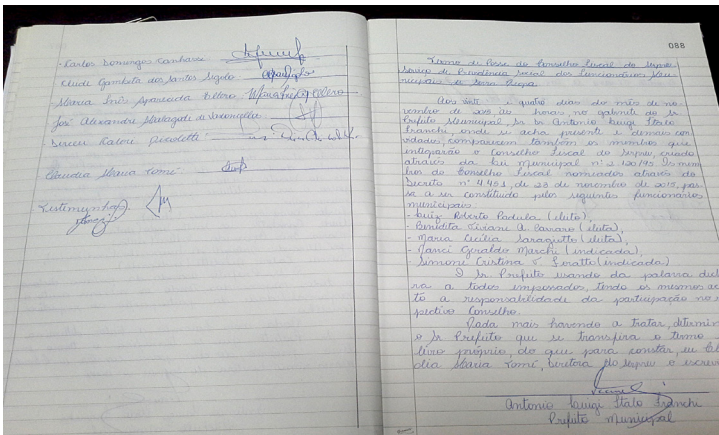 - Karlos Domingos Canhassi
Cleide Gambeta dos Santos
- Maria Inês Aparecida
José Alexandre
Dirceu
Claudia Maria Tomé
Testimunhas
088
Termo de Posse do Conselho Fiscal do Serprev
Serviço de Previdência Social dos Funcionários Mu-
nicipais de Serra Negra
Aos vinte e quatro dias do mês de no-
vembro de 2015, às horas, no gabinete do Sr
Prefeito Municipal, Sr Dr. Antonio Luigi Italo
Franchi, onde se acha presente e demais con
vidados, comparecem também os membros que
integrarão o Conselho Fiscal do Serprev, criado
através da Lei Municipal nº 2 120/95. Os mem
bros do Conselho Fiscal nomeados através do
Decreto nº 4.451, de 23 de novembro de 2015, pas
sa a ser constituido pelos seguintes funcionários
municipais:
- Luiz Roberto Padula (eleito),
- Benedita Viviani A. Cavaro (eleita),
- Maria Cecília Saragiotto (eleita),
- Nanci Geraldo Marchi (indicada),
- Simone Cristina (indicada)
O Sr. Prefeito usando da palavra decl
ra a todos empossados, tendo os mesmos ac
to a responsabilidade da participação no
pectivo Conselho.
Nada mais havendo a tratar, determin
o Sr Prefeito que se transfira o termo
livro próprio, do que para constar, eu Cl
dia Maria Tomé, diretora do Serprev o escrevi
Antonio Luigi Italo Franchi
Prefeito Municipal